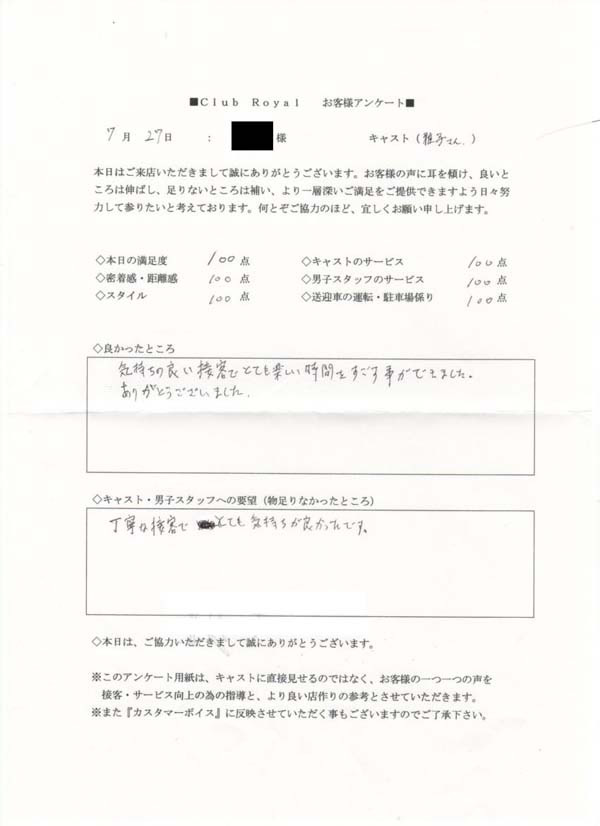 ■Club Royal お客様アンケート■
7月 27日 : 様 キャスト(雅子さん)
本日はご来店いただきまして誠にありがとうございます。お客様の声に耳を傾け、良いと
ころは伸ばし、足りないところは補い、より一層深いご満足をご提供できますよう日々努
力して参りたいと考えております。何とぞご協力のほど、宜しくお願い申し上げます。
◇本日の満足度 100点 ◇キャストのサービス 100点
◇密着感・距離感 100点 ◇男子スタッフのサービス 100点
◇スタイル 100点 ◇送迎車の運転・駐車場係り 100点
◇良かったところ
気持ちの良い接客でとても楽しい時間をすごす事ができました。
ありがとうございました。
◇キャスト・男子スタッフへの要望(物足りなかったところ)
丁寧な接客で とても気持ちが良かったです。
◇本日は、ご協力いただきまして誠にありがとうございます。
※このアンケート用紙は、キャストに直接見せるのではなく、お客様の一つ一つの声を
接客・サービス向上の為の指導と、より良い店作りの参考とさせていただきます。
※また『カスタマーボイス』に反映させていただく事もございますのでご了承下さい。